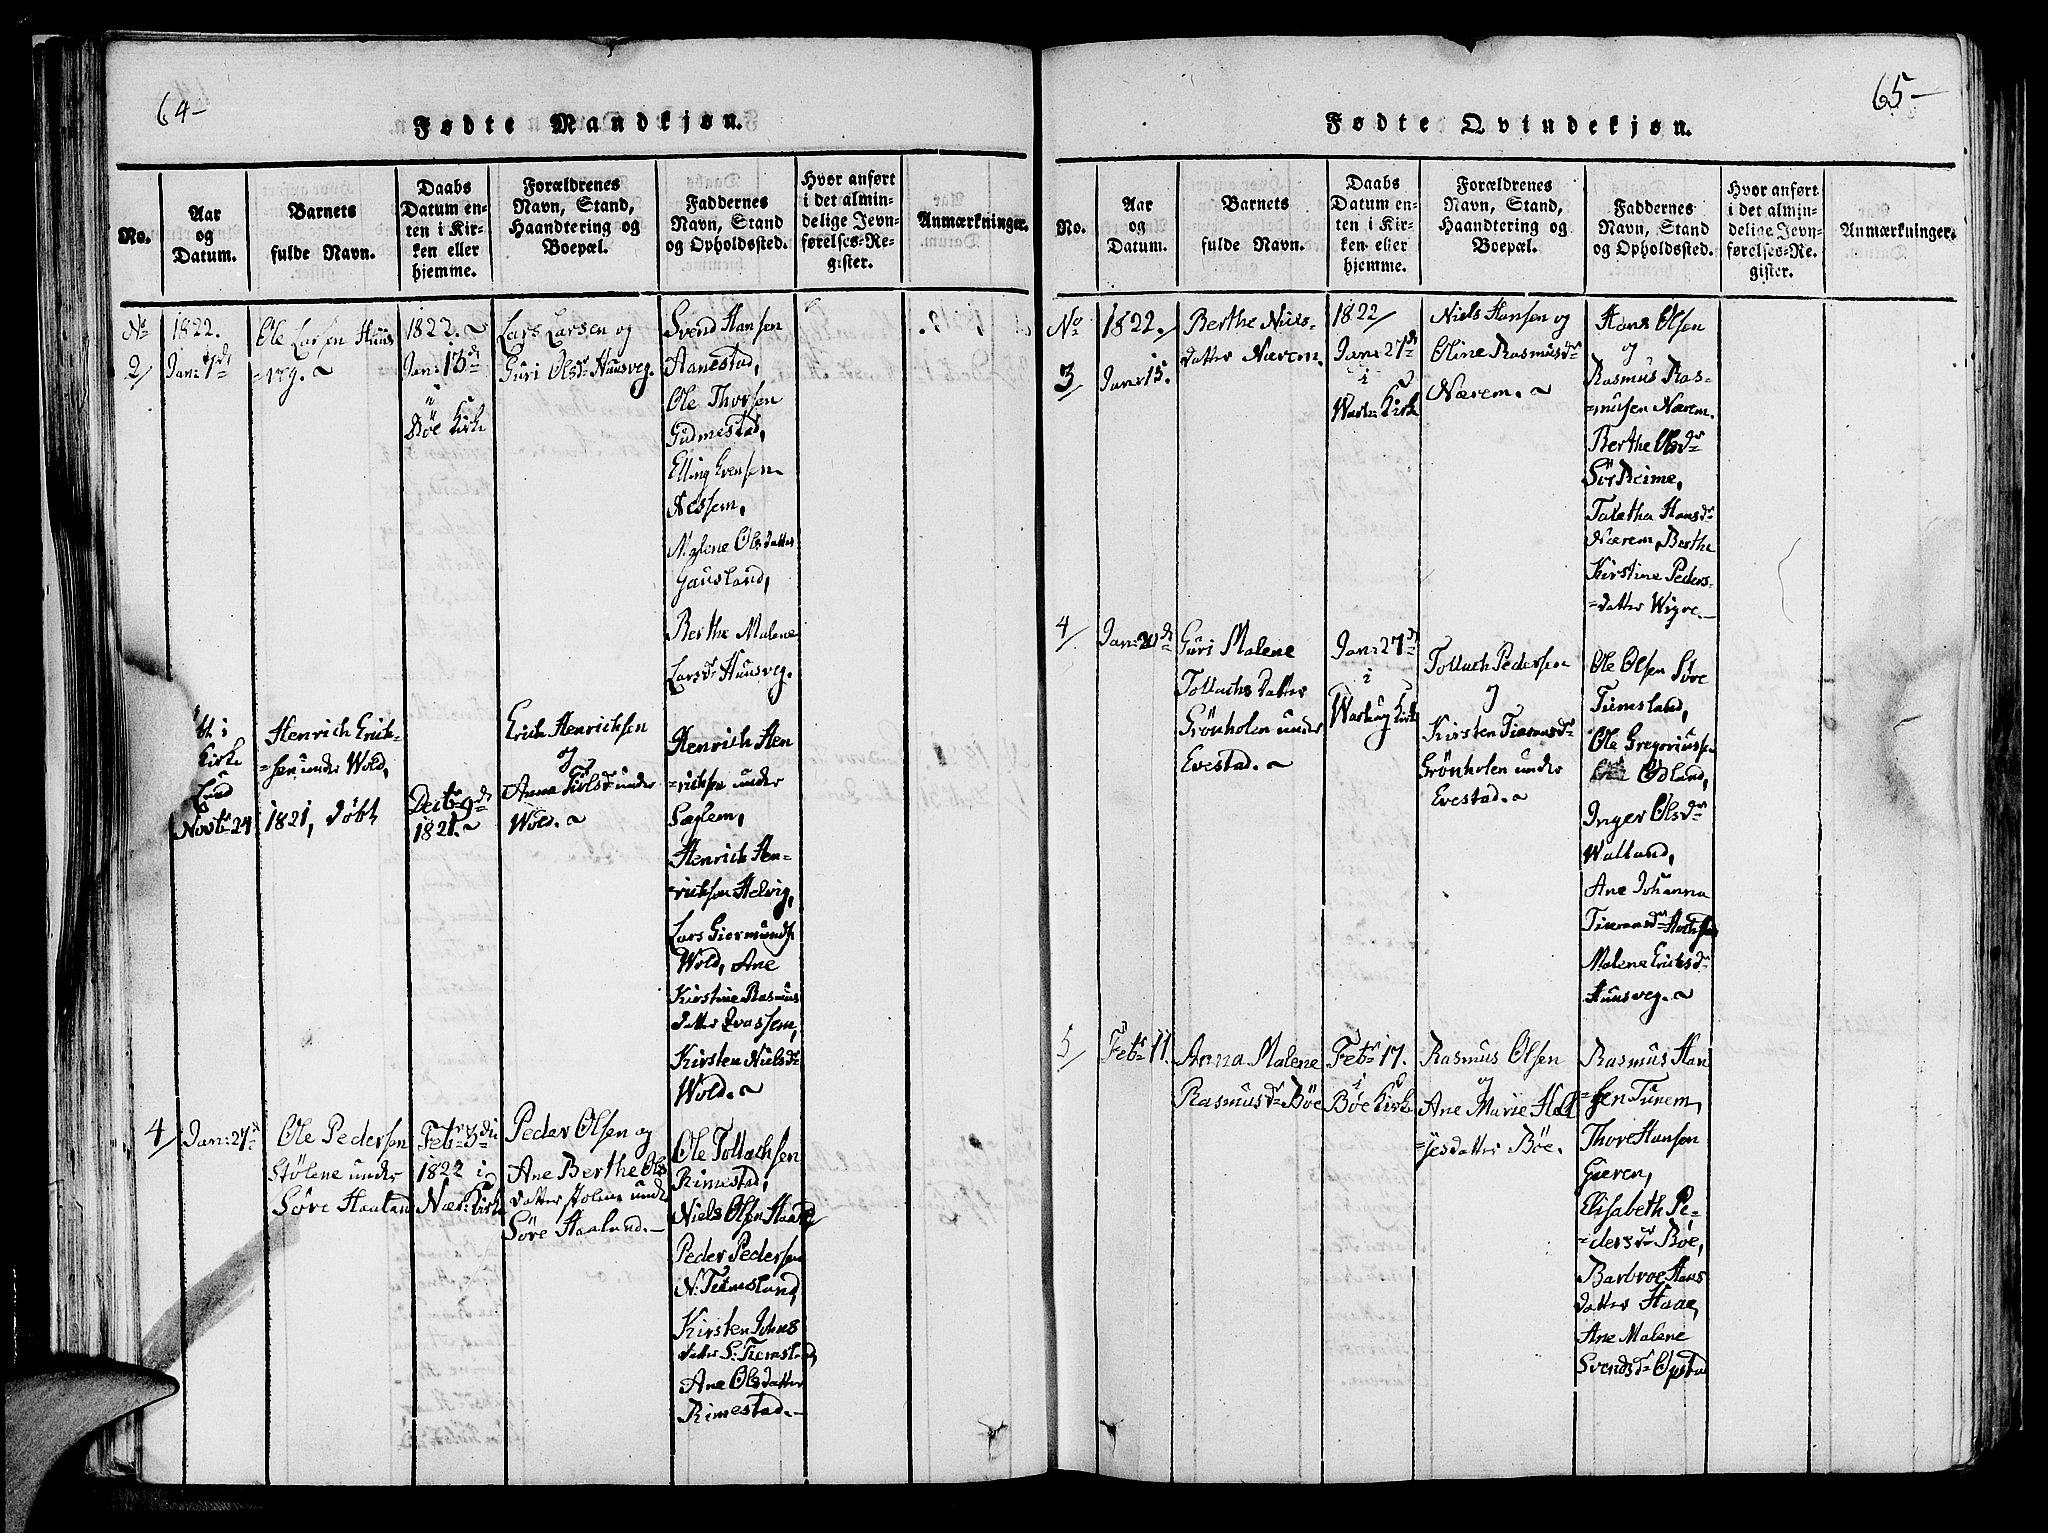 64-
Fødte Mandkjøn.
No.
Aar
og
Datum.
Barnets
fulde Navn.
Daabs
Datum en-
ten i Kir-
ken eller
hjemme.
Forældrenes
Navn, Stand,
Haandtering og
Boepæl.
Faddernes
Navn, Stand
og Opholdssted.
Hvor anført
i det almin-
delige Jevn-
førelses-Re-
gister.
Anmærkninger.
No
2/
1822.
Jan: 7de
Ole Larsen Huus
=veg. ~
1822. ~
Jan: 13de
i
Böe Kirke
Lars Larsen og
Guri Olsdr Huusveg.
Svend Hansen
Aanestad,
Ole Thorsen
Gudmestad,
Elling Evensen
Nessem,
Malene Olsdatter
Gausland,
Berthe Malene
Larsdr Huusveg.
i
Kirke
Lund
Novbr 24
Henrich Erich-
=sen under Wold,
1821, döbt
Decbr 9de
1821. ~
Erich Henrichsen
og
Anna under
Wold. ~
Henrich Hen
=richsen under
Sælem,
Henrich Hen-
=richsen Helvig,
Lars Giermunds
Wold, Ane
Kirstine Rasmus
datter Qvassem,
Kirsten Nielsdr
Wold. ~
4/
Jan: 27de
Ole Pedersen
Stölene under
Söre Haaland
Febr 3die
1822 i
Nær: Kirke
Peder Olsen og
Ane Berthe Ols
datter Stölene under
Söre Haaland. -
Ole Tollachsen
Rimestad,
Niels Olsen Haar
Peder Pedersen
N: Timsland,
Kirsten Johns
datter S: Timsland,
Ane Olsdatter
Rimestad. -
65-
Fødte Qvindekjøn.
No.
Aar
og
Datum.
Barnets
fulde Navn.
Daabs
Datum en-
ten i Kir-
ken eller
hjemme.
Forældrenes
Navn, Stand,
Haandtering og
Boepæl.
Faddernes
Navn, Stand
og Opholdssted.
Hvor anført
i det almin-
delige Jevn-
førelses-Re-
gister.
Anmærkninger.
No
3
1822./
Jan: 15.
Berthe Niels-
datter Nærem.
1822/
Jan: 27de
i
Warh: Kirke
Niels Hansen og
Oline Rasmusdr
Nærem. ~
Hans Olsen
og
Rasmus Ras-
=musen Nærem.
Berthe Olsdr
Sör Reime,
Taletha Hansdr
Nærem, Berthe
Kirstine Peders-
=datter Wigre. -
4/
Jan: 20de
Guri Malene
Tollachsdatter
Grönholen under
Evestad. ~
Jan: 27de
i
Warhaug Kirke
Tollach Pedersen
og
Kirsten Tiemusdr
Grönholen under
Evestad. ~
Ole Olsen Söre
Tumsland,
Ole Gregoriussen
Ödland,
Inger Olsdr
Walland,
Ane Johanna
Malene Erichsdr
Huusveg. ~
5/
Febr 11.
Anna Malene
Rasmusdr Böe
Febr 17.
i
Böe Kirke
Rasmus Olsen
og
Ane Marie Hel
=jesdatter Böe.
Rasmus Han
=sen Tunem,
Thore Hansen
Gieren,
Elisabeth Pe-
=dersdr Böe,
Barbroe Hans
datter Haae,
Ane Malene
Svendsdr Opstad